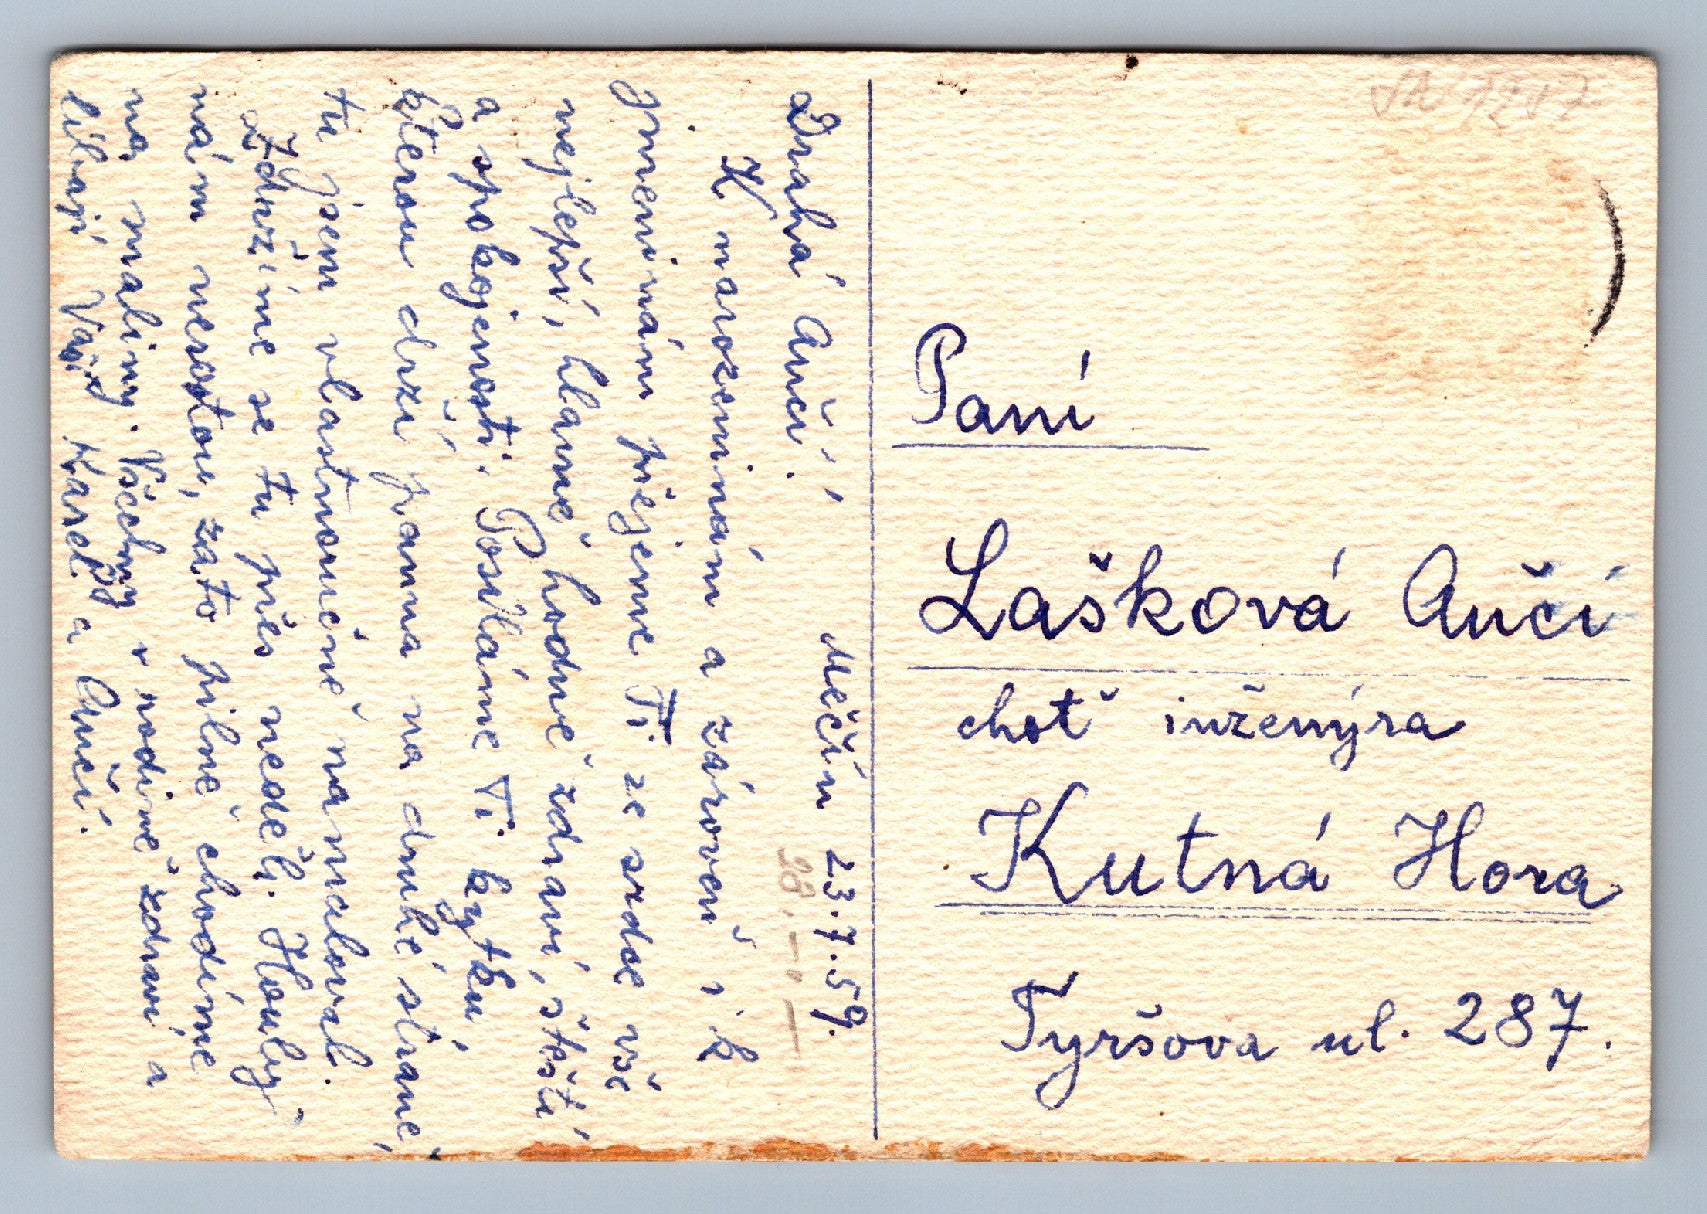 Drahá Anči!, Měčín 23.7.59.
K narozeninám a zároveň i k
jmeninám přejeme Ti ze srdce vše
nejlepší, hlavně hodně zdraví, štěstí
a spokojenosti. Posíláme Ti kytku,
kterou drží panna na druhé straně,
tu jsem vlastnoručně namaloval.
Zdržíme se tu přes neděli. Houby
nám nerostou, zato pilně chodíme
na maliny. Všechny v rodině zdraví a
líbají Vaši Karel a Anči.
Paní
Lašková Anči
choť inženýra
Kutná Hora
Tyršova ul. 287.